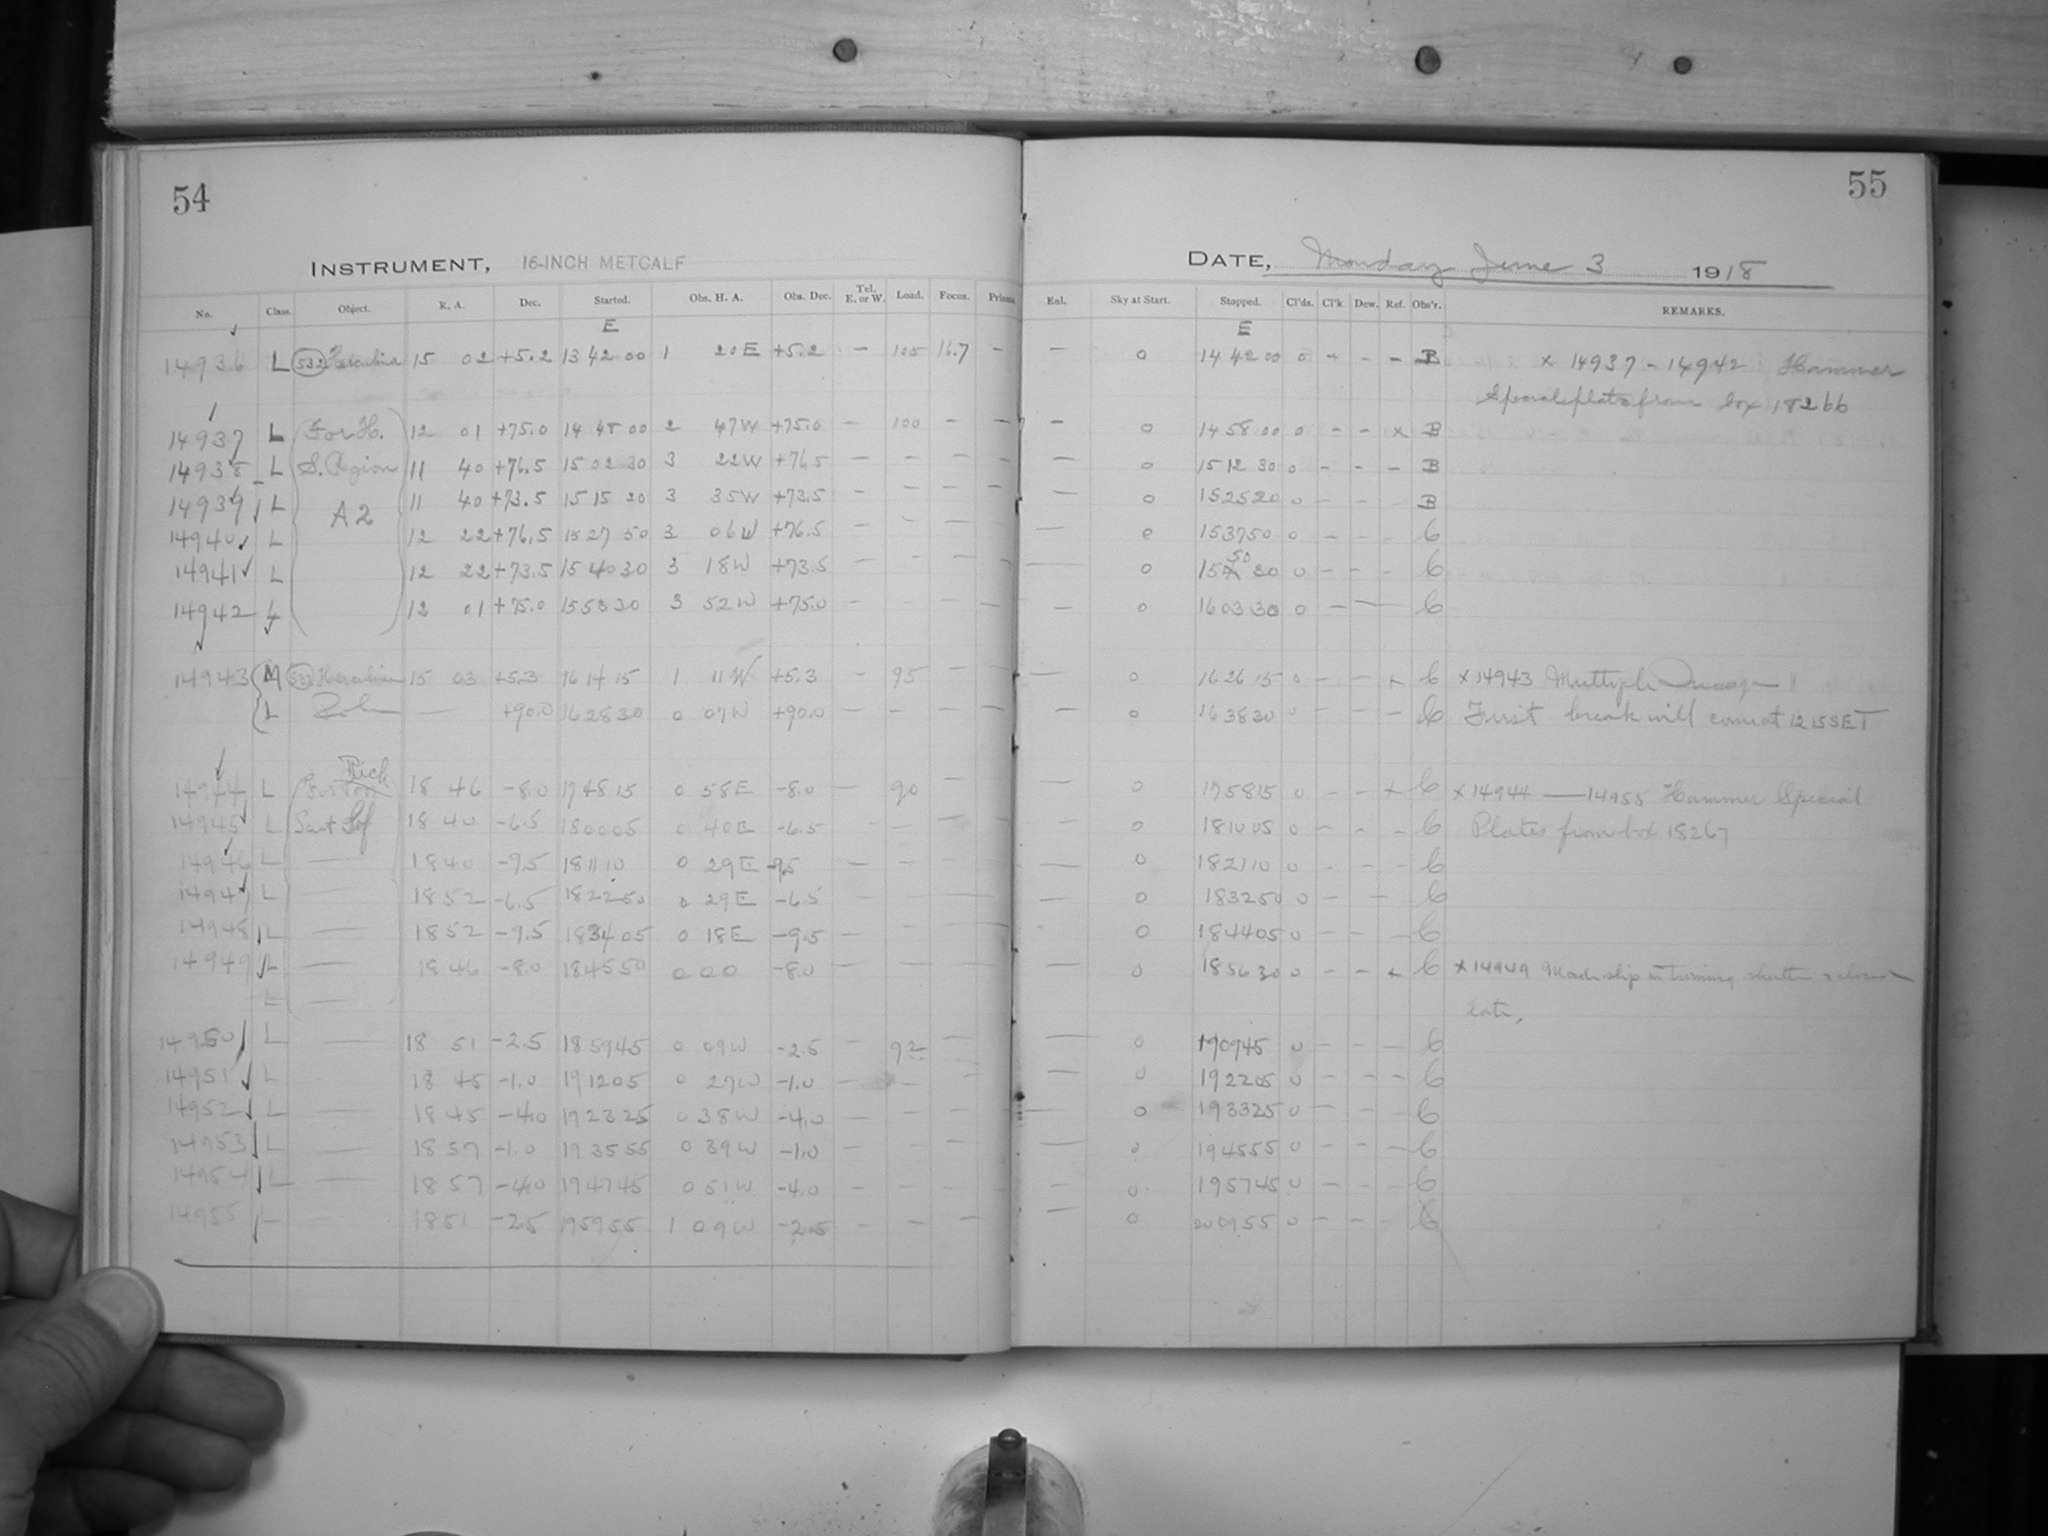 54
55
INSTRUMENT, 16-INCH METCALF
DATE, Monday June 3 1918
No. Class. Object. R. A. Dec. Started. Obs. H. A. Obs. Dec. Tel. E. or W. Load. Focus. Prisms. Enl. Sky at Start. Stopped. Cl'ds. Cl'k Dew. Ref. Obs'r. REMARKS.
E E
14936 L 532 Herculina 15 02 +5.2 13 42 00 1 20 E +5.2 — 105 16.7 — — 0 14 42 00 0 - - - B x 14937 - 14942 Hammer
Special plates from box 18266
14937 L For H. 12 01 +75.0 14 48 00 2 47 W +75.0 — 100 - - - 0 14 58 00 0 - - x B
14938 L S. Region 11 40 +76.5 15 02 30 3 22 W +76.5 — — - - — 0 15 12 30 0 - - - B
14939 L A2 11 40 +73.5 15 15 20 3 35 W +73.5 - - - - — 0 15 25 20 0 - - - B
14940 L 12 22 +76.5 15 27 50 3 06 W +76.5 - - - - — 0 15 37 50 0 - - - C
14941 L 12 22 +73.5 15 40 30 3 18 W +73.5 - - - - — 0 15 50 30 0 - - - C
14942 L 12 01 +75.0 15 53 30 3 52 W +75.0 — - - - — 0 16 03 30 0 - — - C
14943 M 532 Herculina 15 03 +5.3 16 14 15 1 11 W +5.3 - 95 - - — 0 16 26 15 0 - - x C x 14943 Multiple Image
L Pole — +90.0 16 28 30 0 07 W +90.0 - - - - — 0 16 38 30 0 - - - C First break will come at 12 15 S E T
14944 L For Rich 18 46 -8.0 17 48 15 0 58 E -8.0 — 90 - - — 0 17 58 15 0 - - x C x 14944 — 14955 Hammer Special
14945 L Scut Sof 18 40 -6.5 18 00 05 0 40 E -6.5 - - - - — 0 18 10 05 0 - - - C Plates from box 18267
14946 L — 18 40 -9.5 18 11 10 0 29 E -9.5 — - - - — 0 18 21 10 0 - - - C
14947 L — 18 52 -6.5 18 22 50 0 29 E -6.5 - - - - — 0 18 32 50 0 - - C
14948 L — 18 52 -9.5 18 34 05 0 18 E -9.5 - - - - - 0 18 44 05 0 - - - C
14949 L — 18 46 -8.0 18 45 50 0 00 -8.0 - - - - — 0 18 56 30 0 - - x C x 14949 Made slip in turning shutter & closed
L — late.
14950 L — 18 51 -2.5 18 59 45 0 09 W -2.5 - 92 - - — 0 19 09 45 0 - - - C
14951 L — 18 45 -1.0 19 12 05 0 27 W -1.0 — - - - — 0 19 22 05 0 - - - C
14952 L — 18 45 -4.0 19 23 25 0 38 W -4.0 — - - - — 0 19 33 25 0 - - - C
14953 L — 18 57 -1.0 19 35 55 0 39 W -1.0 — - - - — 0 19 45 55 0 - - - C
14954 L — 18 57 -4.0 19 47 45 0 51 W -4.0 - - - - — 0 19 57 45 0 - - - C
14955 L — 18 51 -2.5 19 59 55 1 09 W -2.5 - - - - — 0 20 09 55 0 - - - C